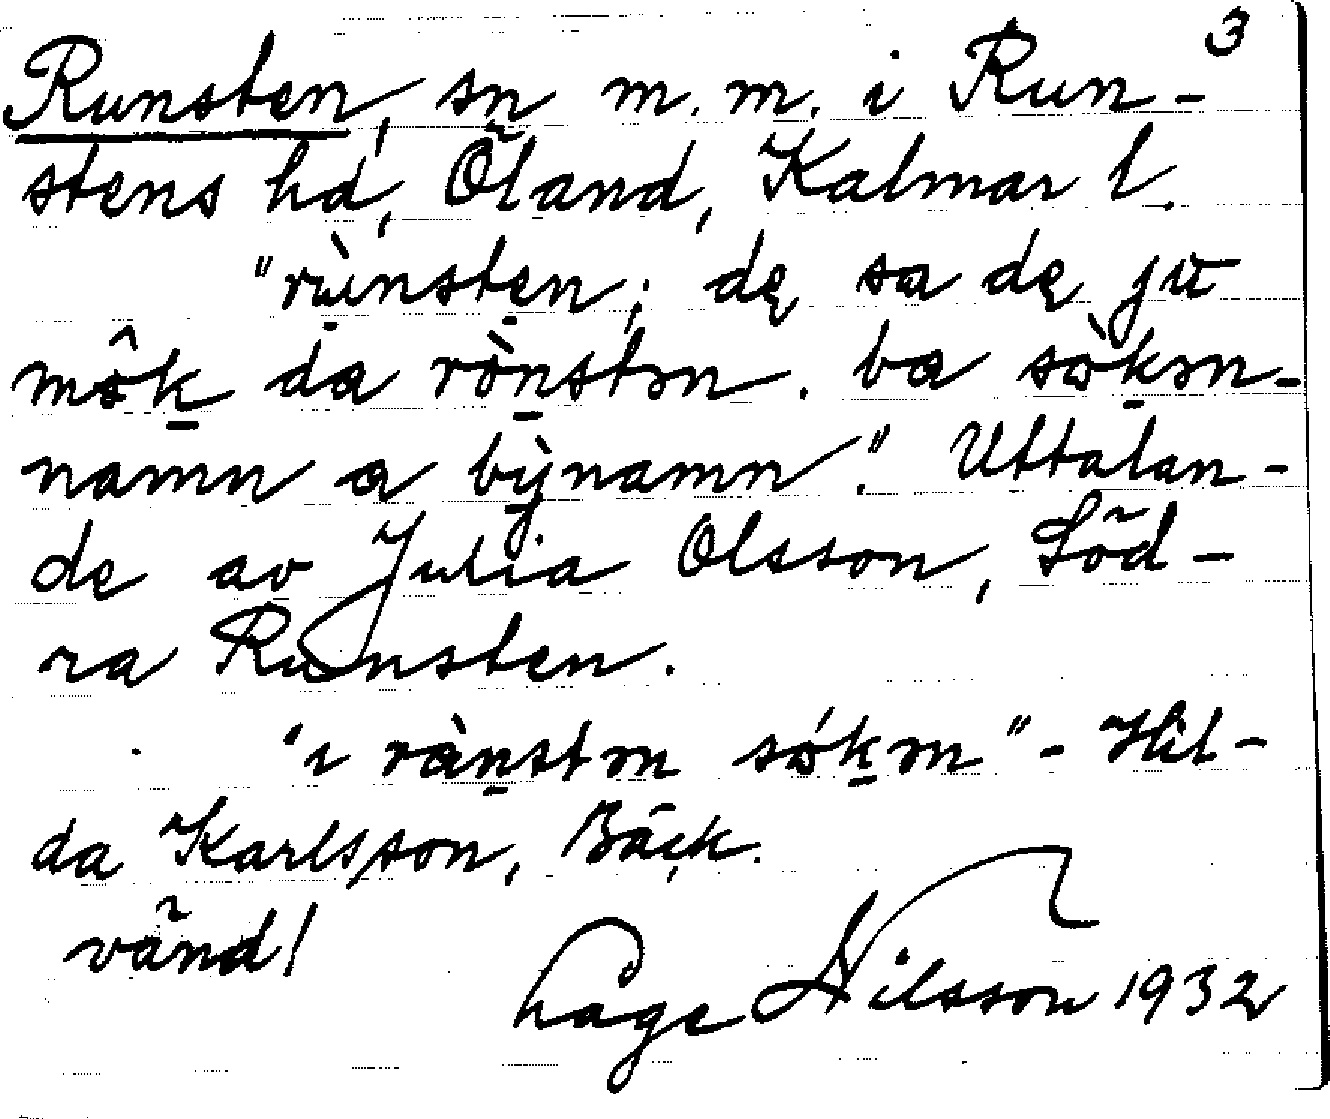 3
Runsten, sn m.m. i Run-
stens hd, Öland, Kalmar l.
"rùnstẹn; dę sa dę jū
môk da rònstɔn. ba sòkɔn-
namn a bỳnamn". Uttalan-
de av Julia Olsson, Söd-
ra Runsten.
"ı rànstɔn sókɔn" - Hil-
da Karlsson, Bäck.
vänd!
Låge Nilsson 1932